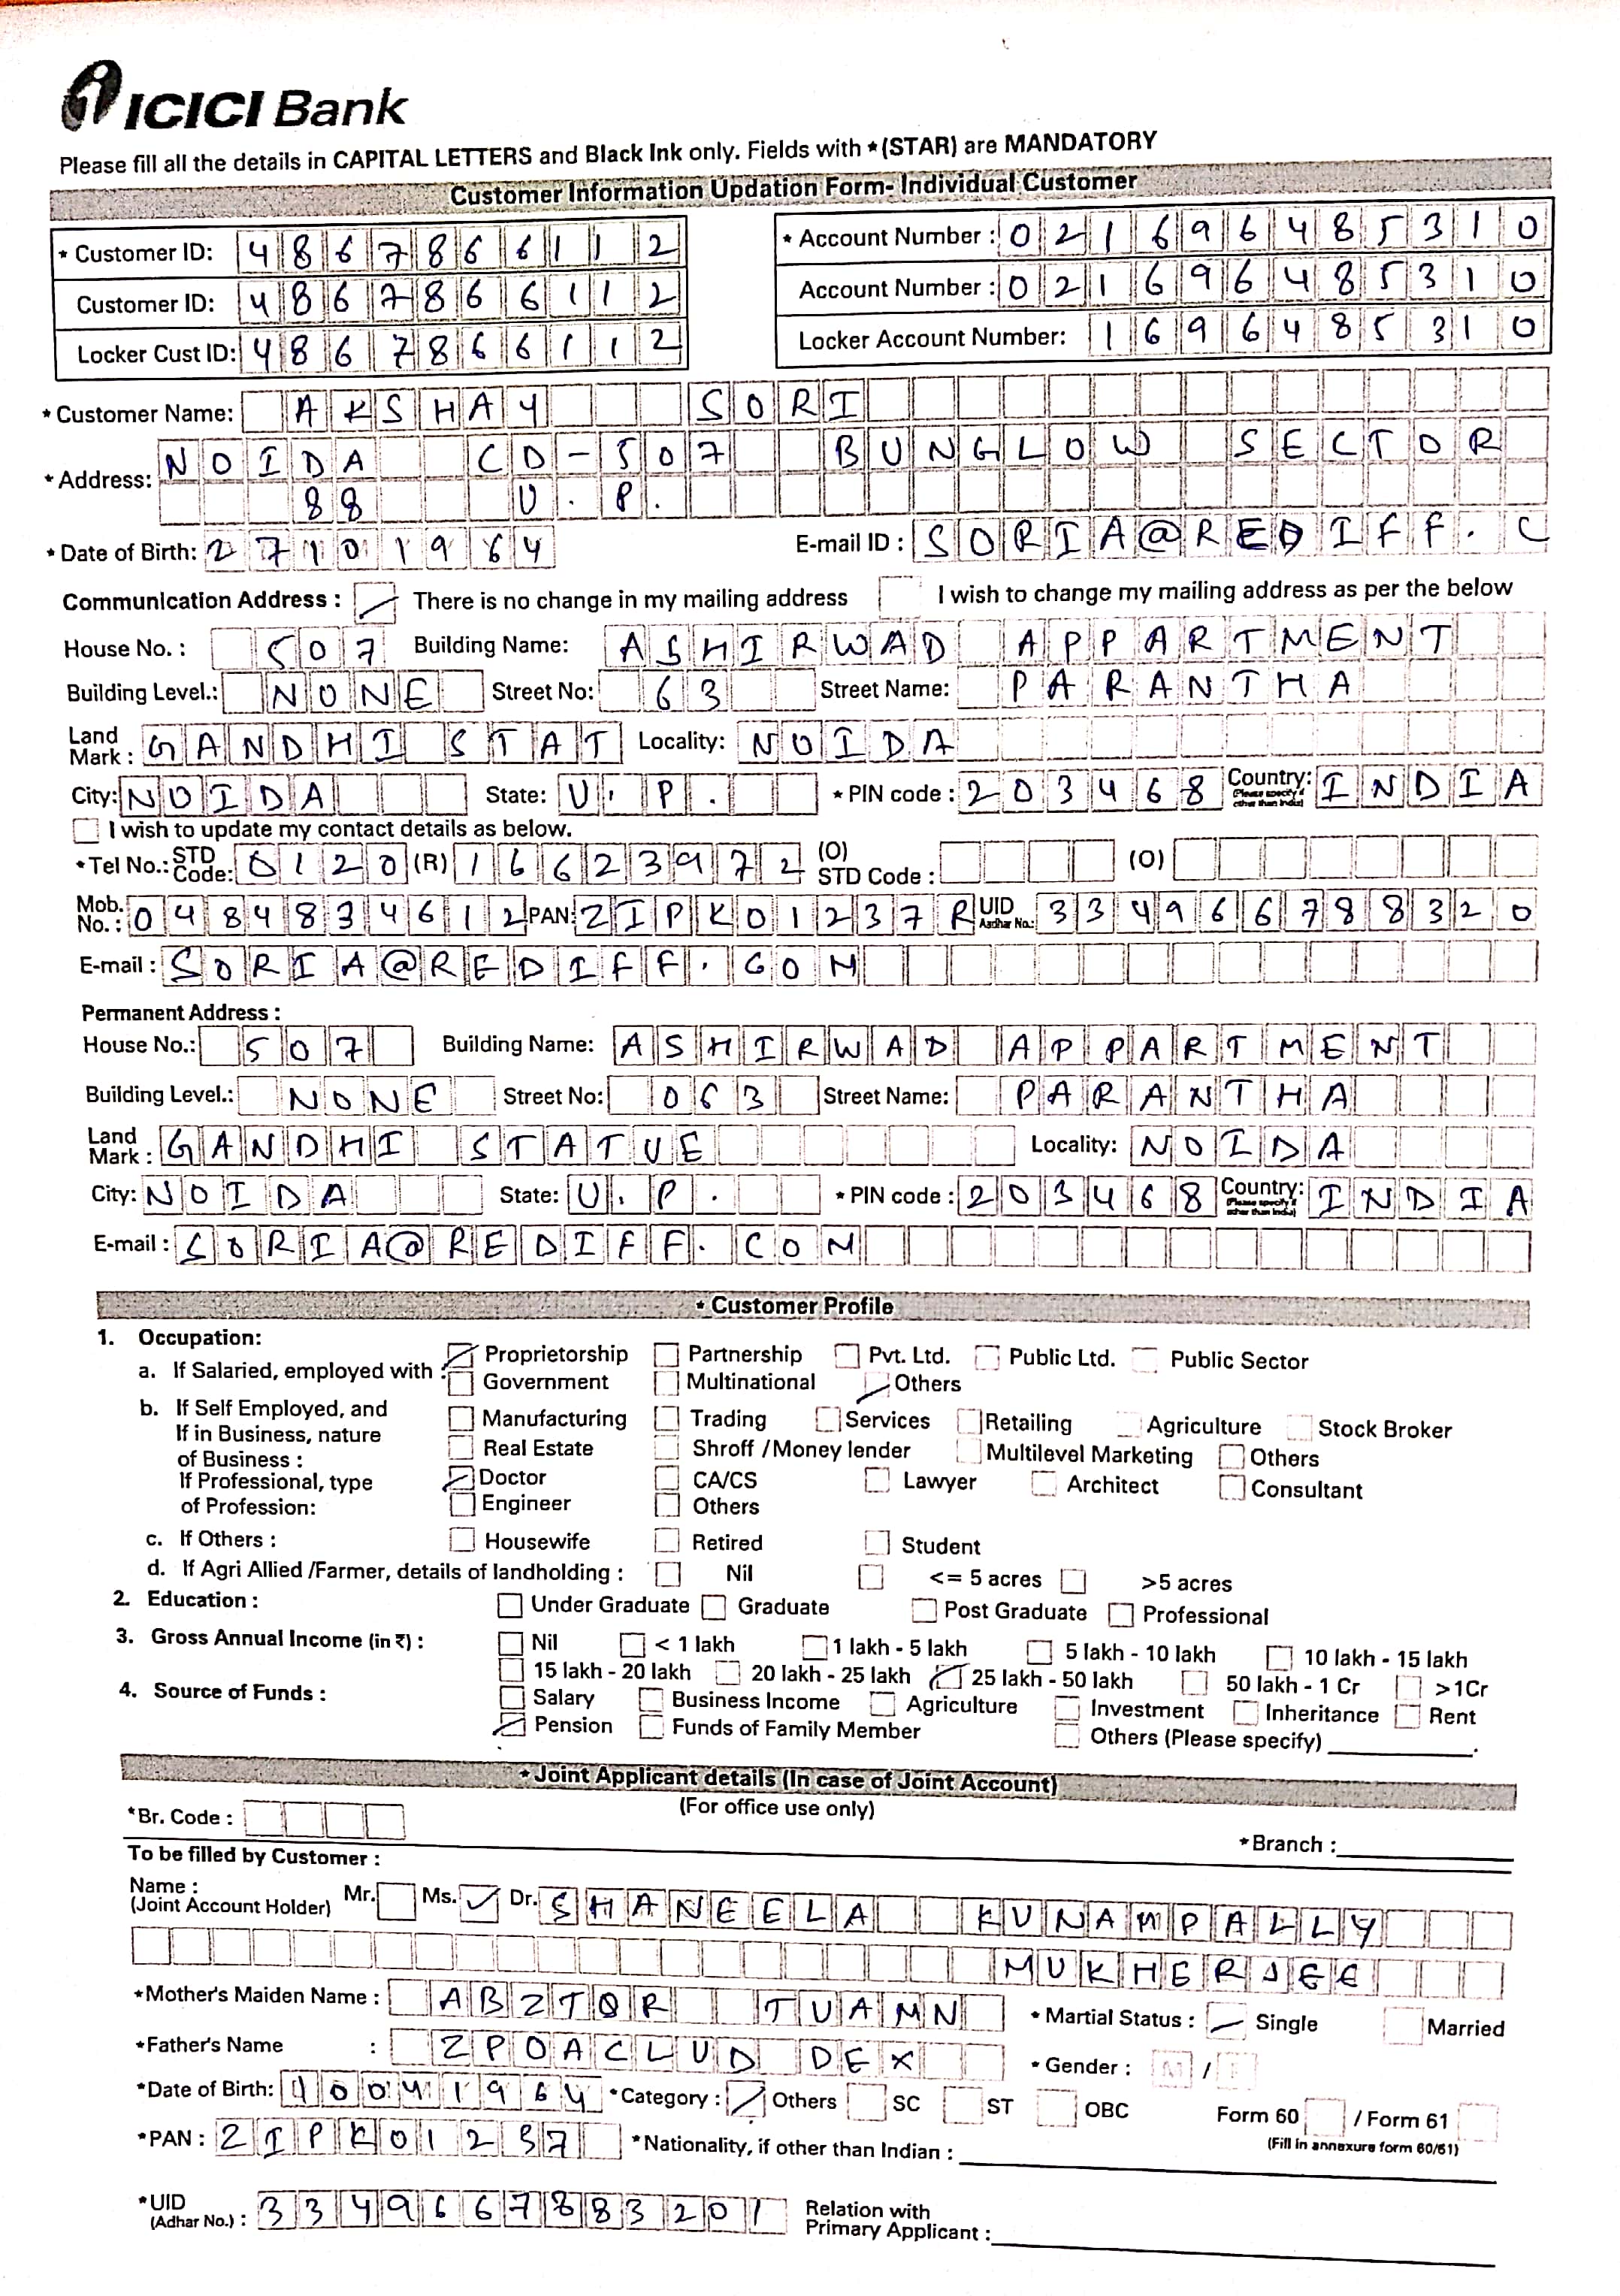 ICICI Bank
Please fill all the details in CAPITAL LETTERS and Black Ink only. Fields with *(STAR) are MANDATORY
Customer Information Updation Form- Individual Customer
* Customer ID: 4867866112 * Account Number : 021696485310
Customer ID: 4867866112 Account Number : 021696485310
Locker Cust ID: 4867866112 Locker Account Number: 1696485310
* Customer Name: AKSHAY SORI
* Address: NOIDA CD-507 BUNGLOW SECTOR
88 U.P.
* Date of Birth: 27101964 E-mail ID : SORIA@REDIFF.C
Communication Address : There is no change in my mailing address I wish to change my mailing address as per the below
House No. : 507 Building Name: ASHIRWAD APPARTMENT
Building Level.: NONE Street No: 63 Street Name: PARANTHA
Land Mark : GANDHI STAT Locality: NOIDA
City: NOIDA State: U.P. * PIN code : 203468 Country: (Please specify if other than India) INDIA
I wish to update my contact details as below.
*Tel No.: STD Code: 0120 (R) 16623972 (O) STD Code : (O)
Mob. No. : 0484834612 PAN: ZIPK01237R UID Aadhar No.: 334966788320
E-mail : SORIA@REDIFF.GOM
Permanent Address :
House No.: 507 Building Name: ASHIRWAD APPARTMENT
Building Level.: NONE Street No: 063 Street Name: PARANTHA
Land Mark : GANDHI STATUE Locality: NOIDA
City: NOIDA State: U.P. * PIN code : 203468 Country: (Please specify if other than India) INDIA
E-mail : SORIA@REDIFF.COM
* Customer Profile
1. Occupation:
a. If Salaried, employed with : Proprietorship Partnership Pvt. Ltd. Public Ltd. Public Sector
Government Multinational Others
b. If Self Employed, and If in Business, nature of Business : Manufacturing Trading Services Retailing Agriculture Stock Broker
Real Estate Shroff /Money lender Multilevel Marketing Others
If Professional, type of Profession: Doctor CA/CS Lawyer Architect Consultant
Engineer Others
c. If Others : Housewife Retired Student
d. If Agri Allied /Farmer, details of landholding : Nil <= 5 acres >5 acres
2. Education : Under Graduate Graduate Post Graduate Professional
3. Gross Annual Income (in ₹) : Nil < 1 lakh 1 lakh - 5 lakh 5 lakh - 10 lakh 10 lakh - 15 lakh
15 lakh - 20 lakh 20 lakh - 25 lakh 25 lakh - 50 lakh 50 lakh - 1 Cr >1Cr
4. Source of Funds : Salary Business Income Agriculture Investment Inheritance Rent
Pension Funds of Family Member Others (Please specify)
* Joint Applicant details (In case of Joint Account)
(For office use only)
*Br. Code : *Branch :
To be filled by Customer :
Name : (Joint Account Holder) Mr. Ms. Dr. SHANEELA KUNAMPALLY
MUKHERJEE
*Mother's Maiden Name : ABZTOR TUAMN * Martial Status : Single Married
*Father's Name : ZPOACLUD DEX * Gender : M / F
*Date of Birth: 10041964 *Category : Others SC ST OBC Form 60 / Form 61
(Fill in annexure form 60/61)
*PAN : ZIPK01237 *Nationality, if other than Indian :
*UID (Adhar No.) : 3349667883201 Relation with Primary Applicant :